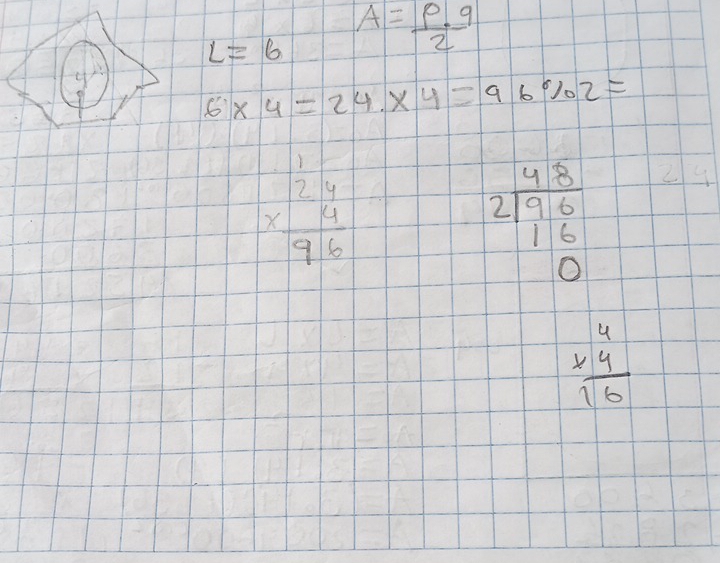 A = P.9
2
L = 6
6 x 4 = 24. x 4 = 96 % 2 =
1
24
x 4
96
48
2 96
16
0
24
4
x 4
16
4